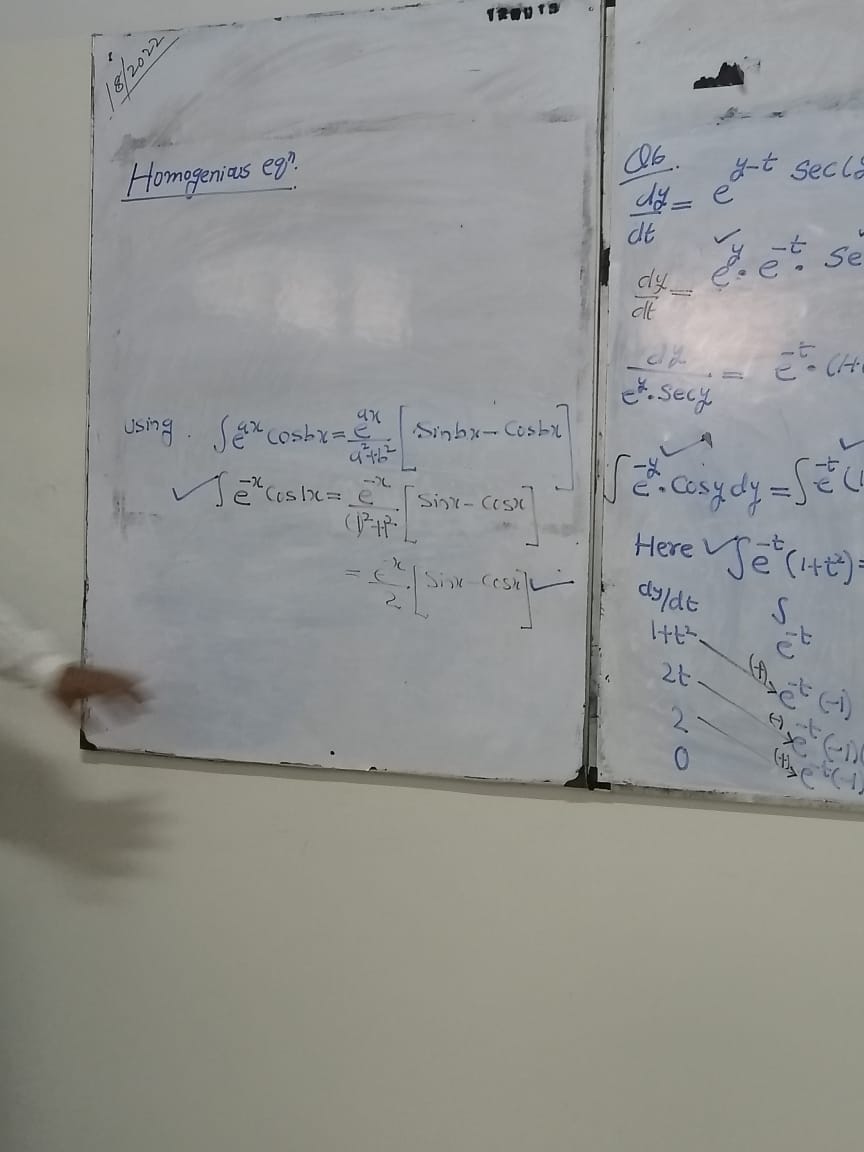 18/2022
Homogenious eqⁿ.
Using. ∫e^ax cosbx = e^ax/a²+b² [Sinbx - Cosbx]
✓∫e^-x Cos1x = e^-x/(1)²+1² [Sinx - Cosx]
= e^-x/2 [Sinx - Cosx] ✓
Q6.
dy/dt = e^y-t sec(y
dy/dt = e^y . e^-t . Se
dy/e^y.Secy = e^-t . (1+
∫e^-y . Cosy dy = ∫e^-t (1
Here ✓∫e^-t (1+t²) =
dy/dt ∫
1+t² e^-t
2t (+) e^-t (-1)
2 (-) e^-t (-1)(
0 (+) e^-t (-1)